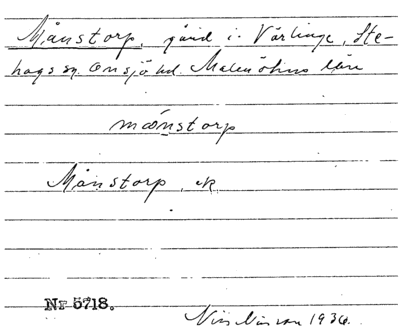 Månstorp, gård i Värlinge, Ste-
hags sn. Onsjö hd. Malmöhus län
månstorp
Månstorp, ek
Nr 5718.
Nils Nilsson 1936.